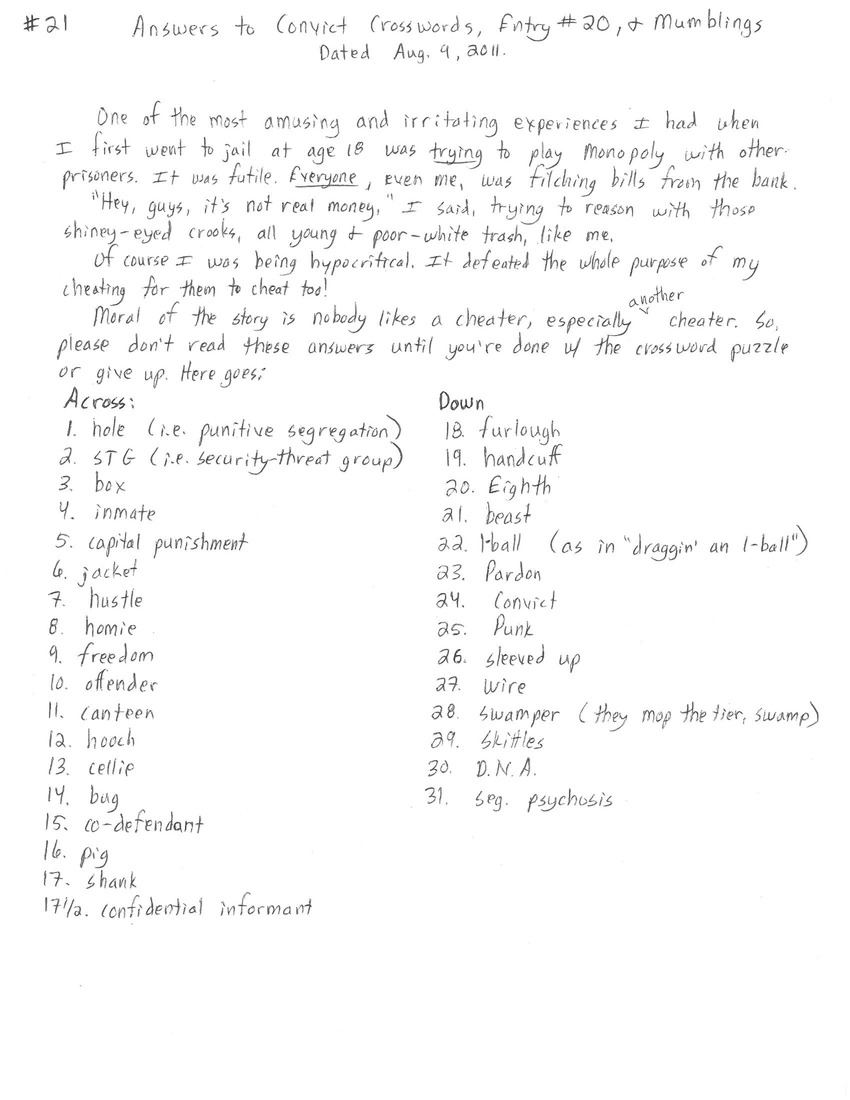 #21 Answers to Convict Crosswords, Entry #20, & Mumblings
Dated Aug. 9, 2011.
One of the most amusing and irritating experiences I had when
I first went to jail at age 18 was trying to play Monopoly with other
prisoners. It was futile. Everyone, even me, was filching bills from the bank.
"Hey, guys, it's not real money," I said, trying to reason with those
shiney-eyed crooks, all young & poor-white trash, like me.
Of course I was being hypocritical. It defeated the whole purpose of my
cheating for them to cheat too!
Moral of the story is nobody likes a cheater, especially another cheater. So,
please don't read these answers until you're done w/ the crossword puzzle
or give up. Here goes:
Across:
1. hole (i.e. punitive segregation)
2. STG (i.e. security-threat group)
3. box
4. inmate
5. capital punishment
6. jacket
7. hustle
8. homie
9. freedom
10. offender
11. canteen
12. hooch
13. cellie
14. bug
15. co-defendant
16. pig
17. shank
17 1/2. confidential informant
Down
18. furlough
19. handcuff
20. Eighth
21. beast
22. 1-ball (as in "draggin' an 1-ball")
23. Pardon
24. Convict
25. Punk
26. sleeved up
27. wire
28. swamper (they mop the tier, swamp)
29. skittles
30. D.N.A.
31. seg. psychosis